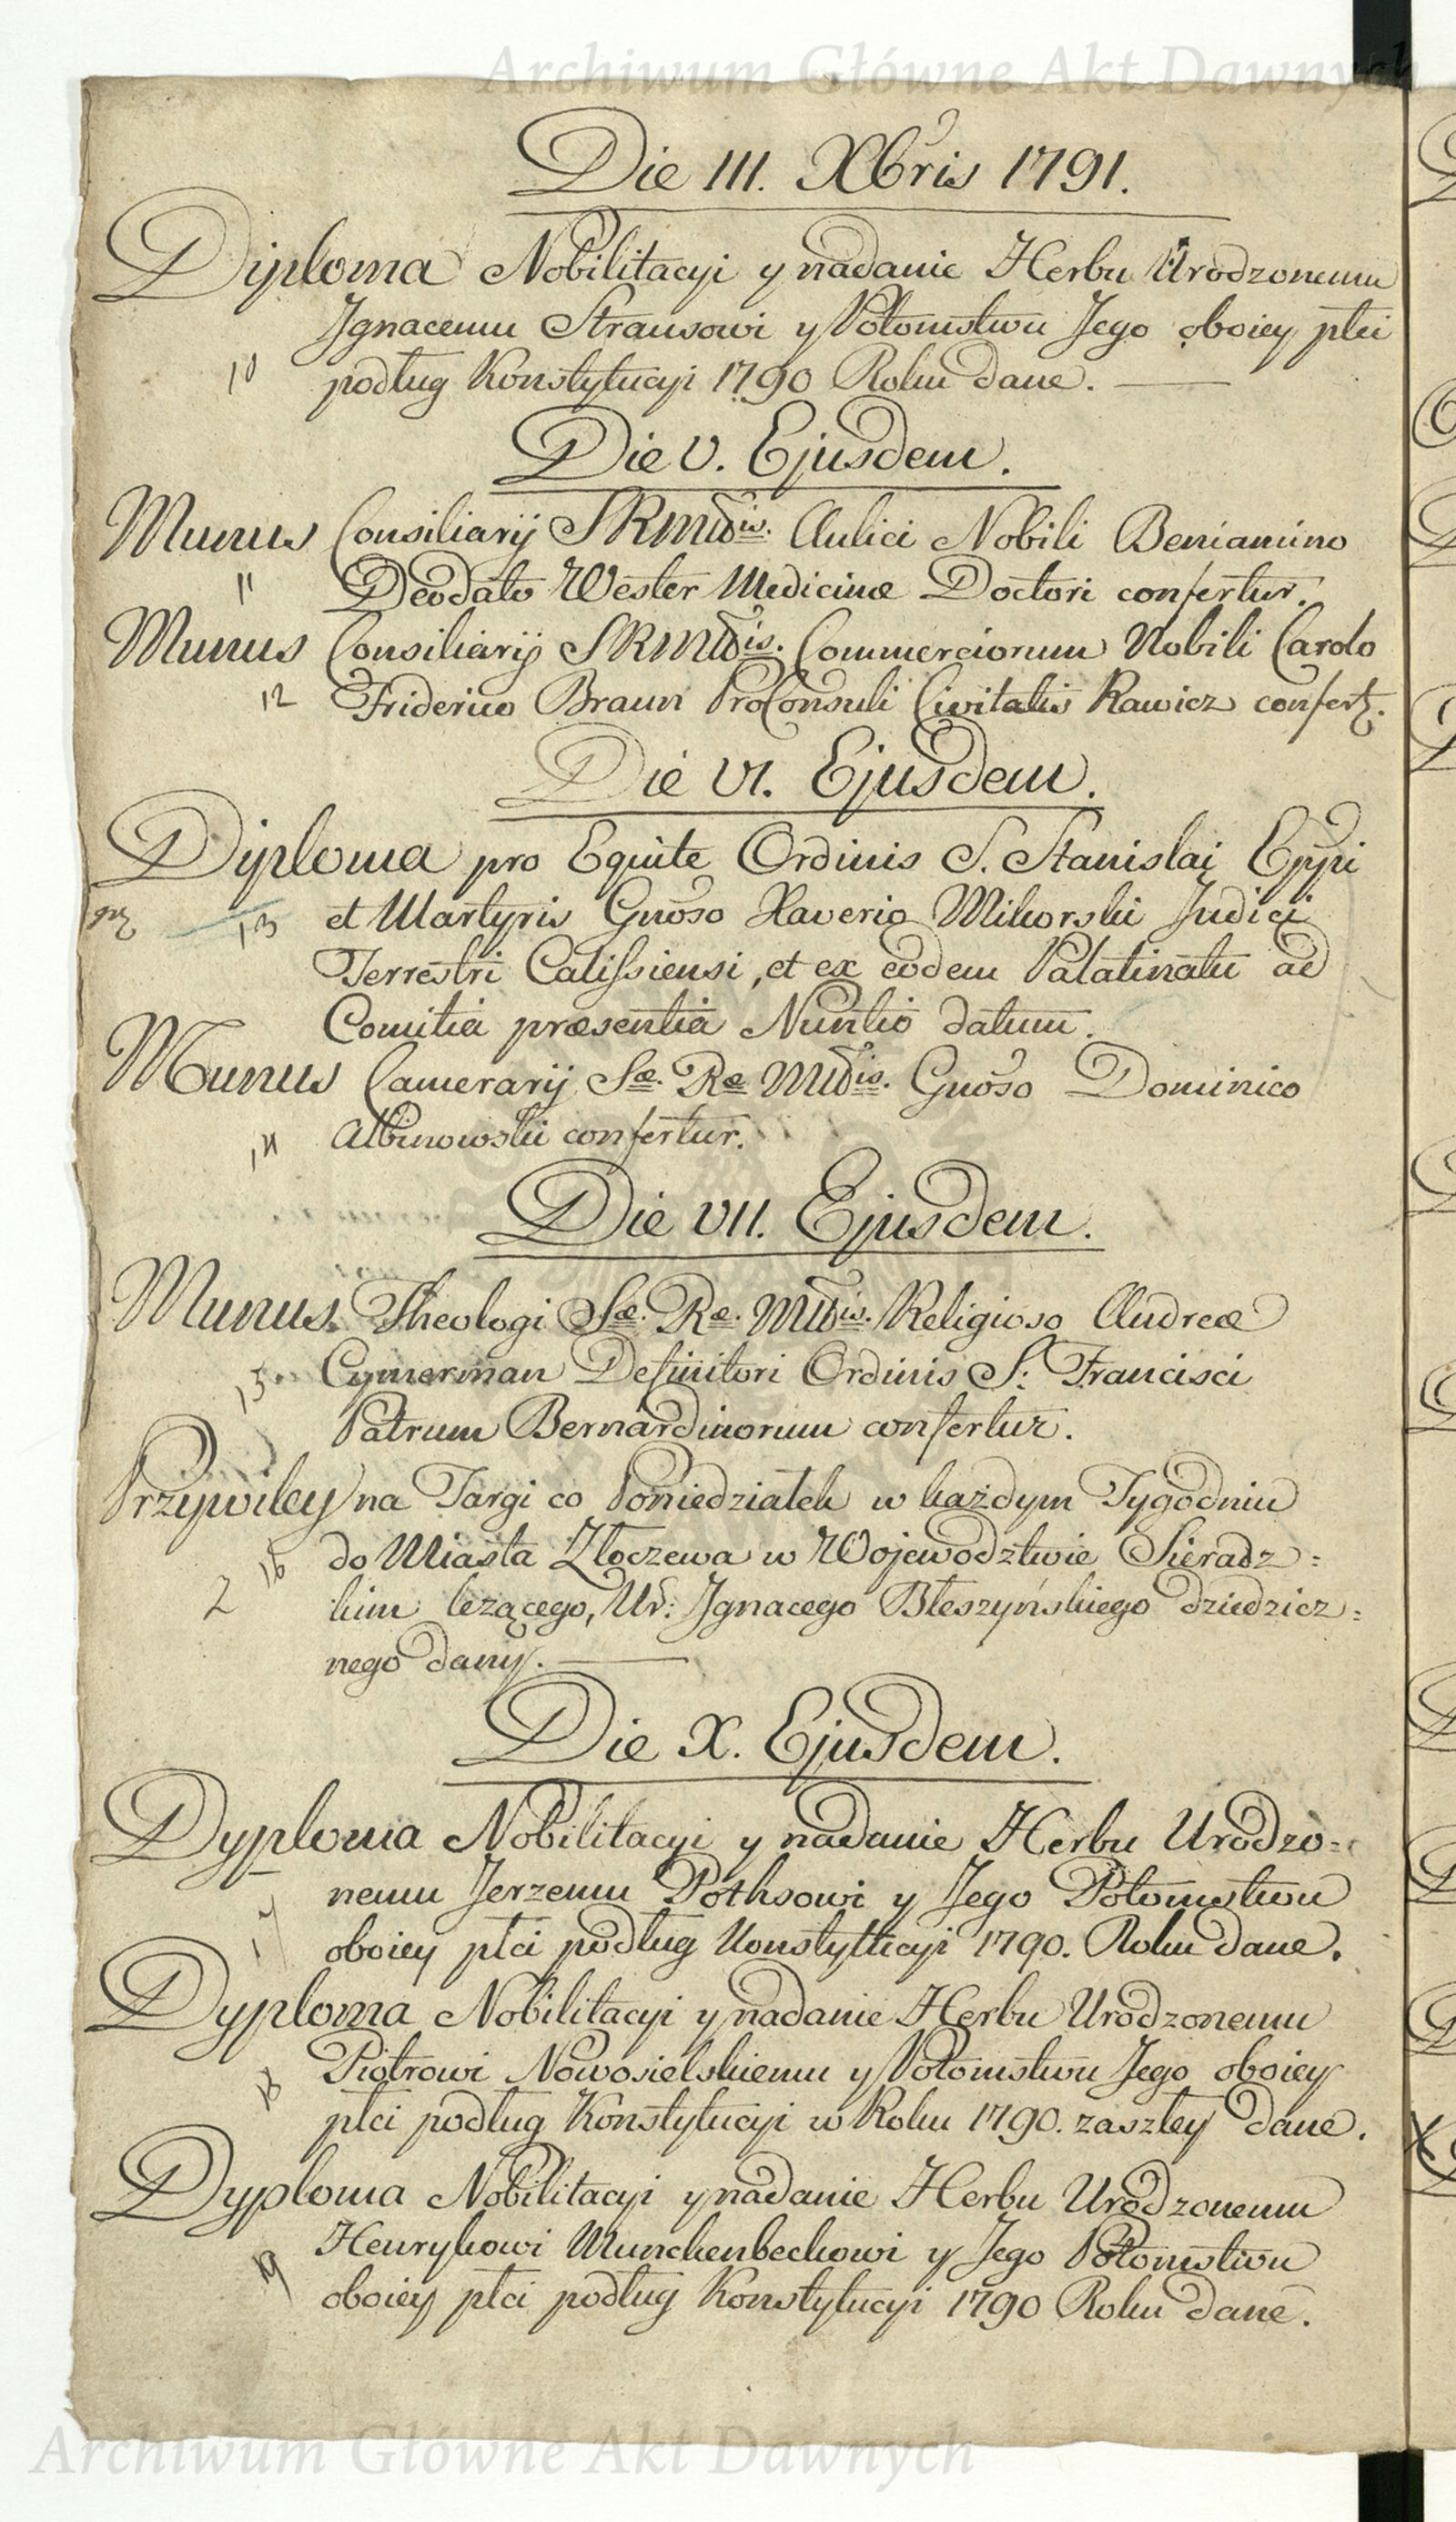 Archiwum Główne Akt Dawnych
Die III. Xbris 1791.
Diploma Nobilitacyi y nadanie Herbu Urodzonemu
Jgnacemu Strausowi y Potomstwu Jego oboiey płci
10 podług Konstytucyi 1790 Roku dane.
Die V. Ejusdem.
Munus Consiliarij SRMtis. Aulici Nobili Beniamino
11 Deodato Wester Medicinæ Doctori confertur.
Munus Consiliarij SRMtis. Commerciorum Nobili Carolo
12 Friderico Braun ProConsuli Civitatis Rawicz confert.
Die VI. Ejusdem.
Diploma pro Equite Ordinis S. Stanislai Eppi
13 et Martyris Gnoso Xaverio Mikorski Judici
Terrestri Calissiensi, et ex eodem Palatinatu ad
Comitia præsentia Nuntio datum.
Munus Camerarij Sæ. Ræ Mtis. Gnoso Dominico
14 Albinowski confertur.
Die VII. Ejusdem.
Munus Theologi Sæ. Ræ. Mtis. Religioso Andreæ
15. Cymerman Definitori Ordinis S: Francisci
Patrum Bernardinorum confertur.
Przywiley na Targi co Poniedziałek w każdym Tygodniu
16 do Miasta Złoczewa w Wojewodztwie Sieradz=
2 kim leżącego, Ur: Jgnacego Błeszyńskiego dziedzicz=
nego dany.
Die X. Ejusdem.
Dyploma Nobilitacyi y nadanie Herbu Urodzo=
nemu Jerzemu Pothsowi y Jego Potomstwu
17 oboiey płci podług Konstytucyi 1790. Roku dane.
Dyploma Nobilitacyi y nadanie Herbu Urodzonemu
18 Piotrowi Nowosielskiemu y Potomstwu Jego oboiey
płci podług Konstytucyi w Roku 1790. zaszłey dane.
Dyploma Nobilitacyi y nadanie Herbu Urodzonemu
19 Henrykowi Munckenbeckowi y Jego Potomstwu
oboiey płci podług Konstytucyi 1790 Roku dane.
Archiwum Główne Akt Dawnych